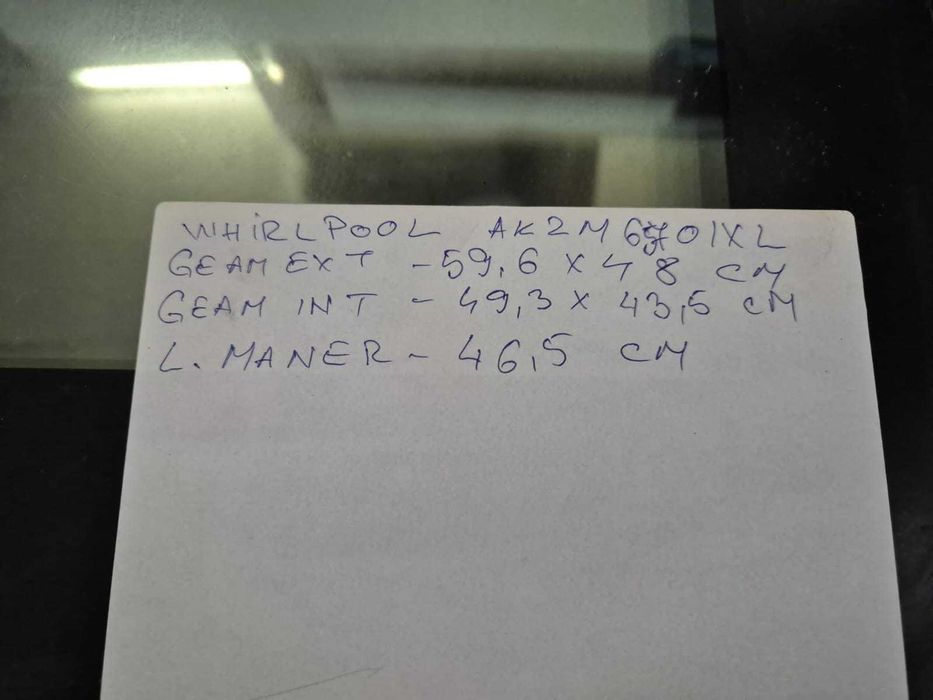 WHiRLPOOL AK2M 6701XL
GEAM EXT - 59,6 X 48 CM
GEAM INT - 49,3 X 43,5 CM
L. MANER - 46,5 CM